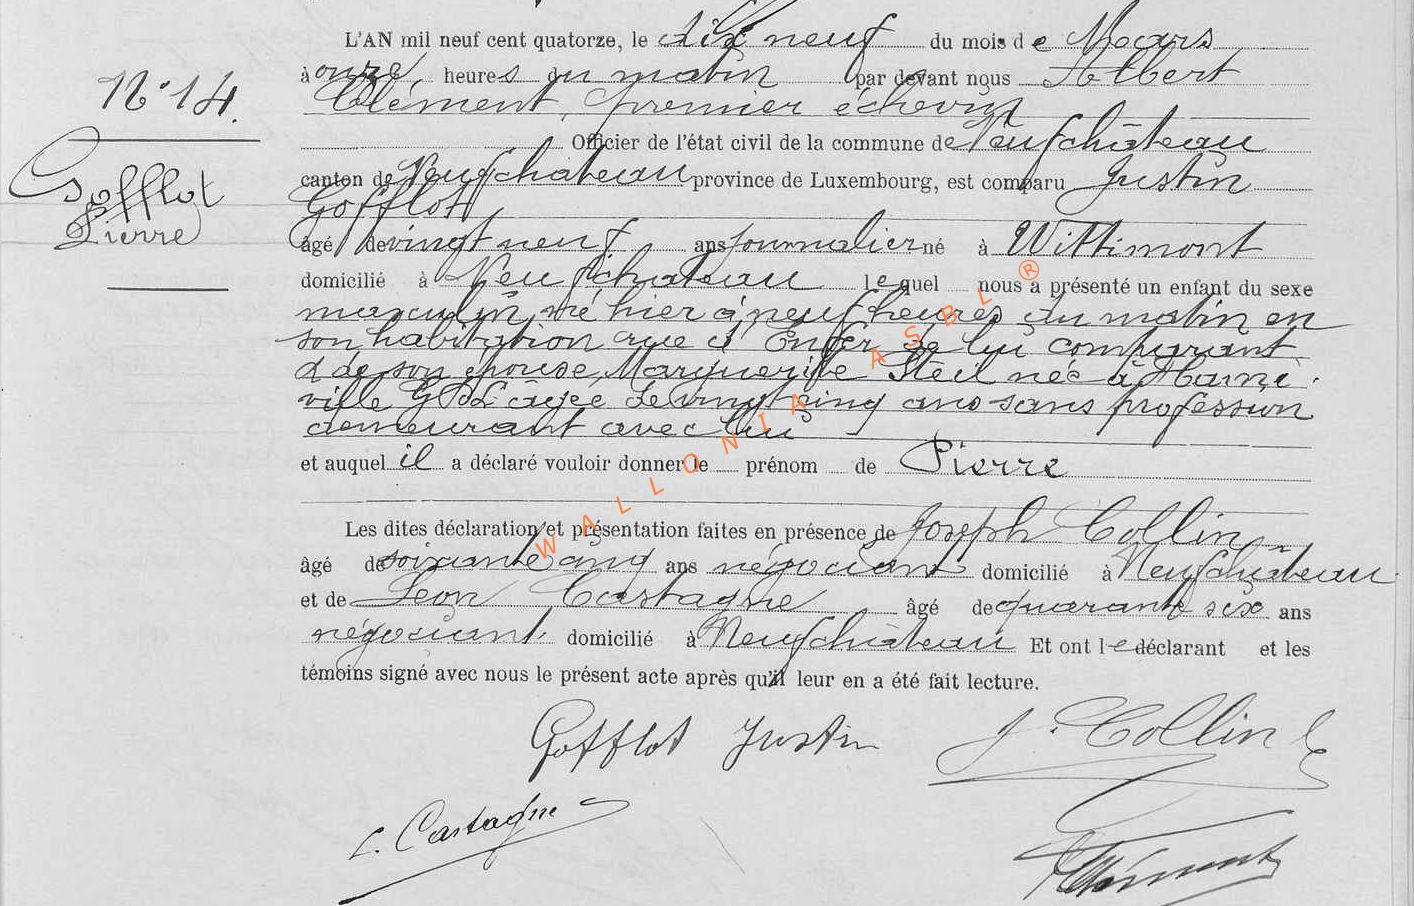 L'AN mil neuf cent quatorze, le dix neuf du mois de Mars
à onze heures du matin par devant nous Albert
N° 14.
Clément, premier échevin
Officier de l'état civil de la commune de Neufchâteau
canton de Neufchateau province de Luxembourg, est comparu Justin
Gofflot
Gofflot
Pierre
âgé de vingt neuf ans journalier né à Wittimont
domicilié à Neufchateau lequel nous a présenté un enfant du sexe
masculin, né hier à neuf heures du matin en
son habitation rue d'Enfer de lui comparant
& de son épouse, Marguerite Steil née à
ville G D L âgée de vingt cinq ans sans profession
demeurant avec lui
et auquel il a déclaré vouloir donner le prénom de Pierre
Les dites déclaration et présentation faites en présence de Joseph Collin
âgé de soixante cinq ans négociant domicilié à Neufchâteau
et de Léon Castagne âgé de quarante six ans
négociant domicilié à Neufchâteau Et ont le déclarant et les
témoins signé avec nous le présent acte après qu'il leur en a été fait lecture.
Gofflot Justin
J. Collin
L. Castagne
Clément
WALLONIA ASBL ®